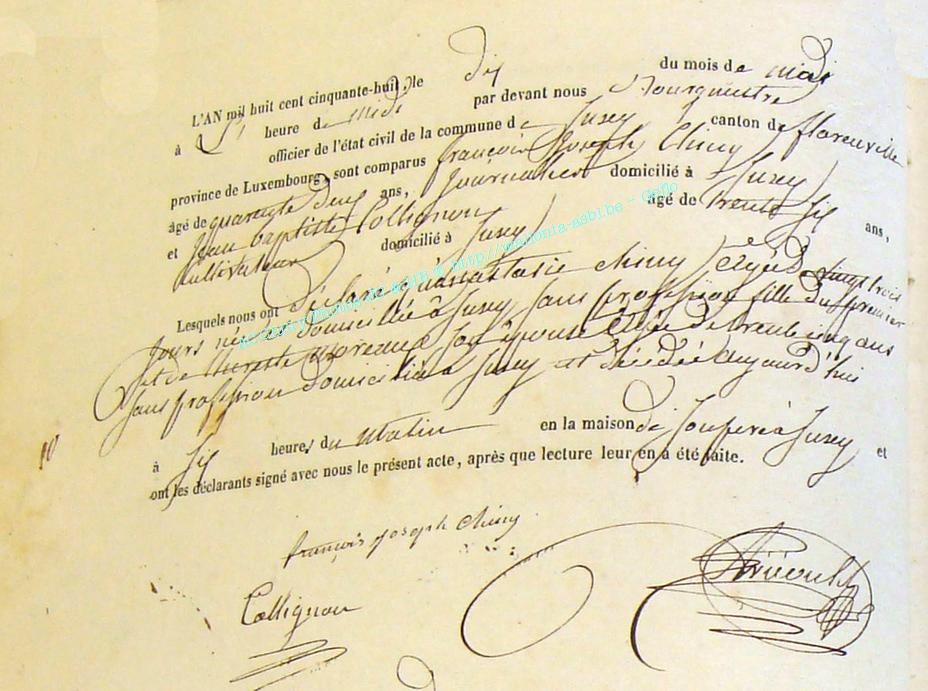 L'AN mil huit cent cinquante-huit, le dix du mois de mai
à heure de Midi par devant nous Bourguestre
officier de l'état civil de la commune de Jusey canton de florenville
province de Luxembourg, sont comparus françois Joseph Chiny
âgé de quarente deux ans, Journalier domicilié à Jusey
et Jean baptiste Collignon âgé de trente Six ans,
Cultivateur domicilié à Jusey
Lesquels nous ont déclaré qu'anastasie chiny agée de vingt trois
jours née et domiciliée à Jusey sans profession fille du premier
et de moreaux son épouse agée de trente cinq ans
sans profession domiciliée à Jusey est décédée aujourd'hui
à Six heures du Matin en la maison de Son pere à Jusey et
ont les déclarants signé avec nous le présent acte, après que lecture leur en a été faite.
françois joseph chiny
Collignon